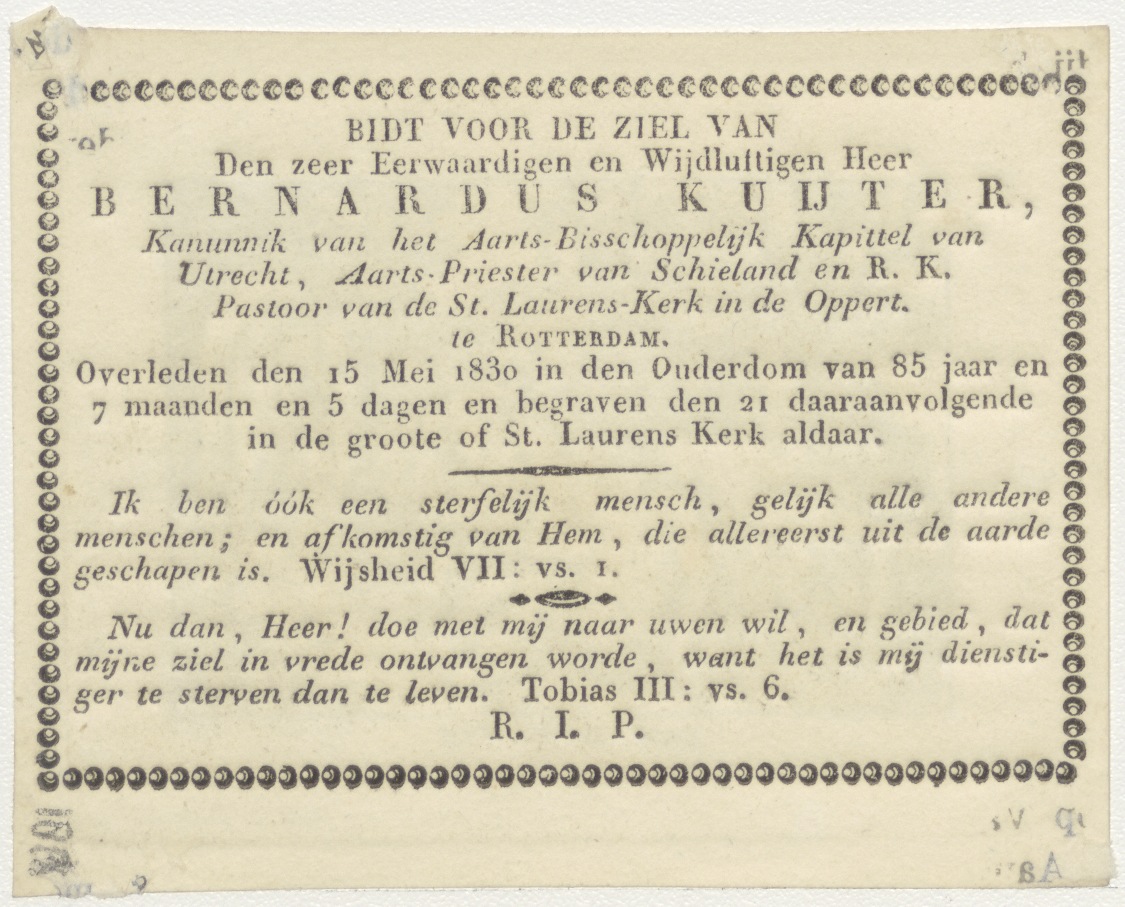 BIDT VOOR DE ZIEL VAN
Den zeer Eerwaardigen en Wijdluftigen Heer
BERNARDUS KUIJTER,
Kanunnik van het Aarts-Bisschoppelijk Kapittel van
Utrecht, Aarts-Priester van Schieland en R. K.
Pastoor van de St. Laurens-Kerk in de Oppert.
te ROTTERDAM.
Overleden den 15 Mei 1830 in den Ouderdom van 85 jaar en
7 maanden en 5 dagen en begraven den 21 daaraanvolgende
in de groote of St. Laurens Kerk aldaar.
Ik ben óók een sterfelijk mensch, gelijk alle andere
menschen; en afkomstig van Hem, die allereerst uit de aarde
geschapen is. Wijsheid VII: vs. 1.
Nu dan, Heer! doe met mij naar uwen wil, en gebied, dat
mijne ziel in vrede ontvangen worde, want het is mij diensti-
ger te sterven dan te leven. Tobias III: vs. 6.
R. I. P.